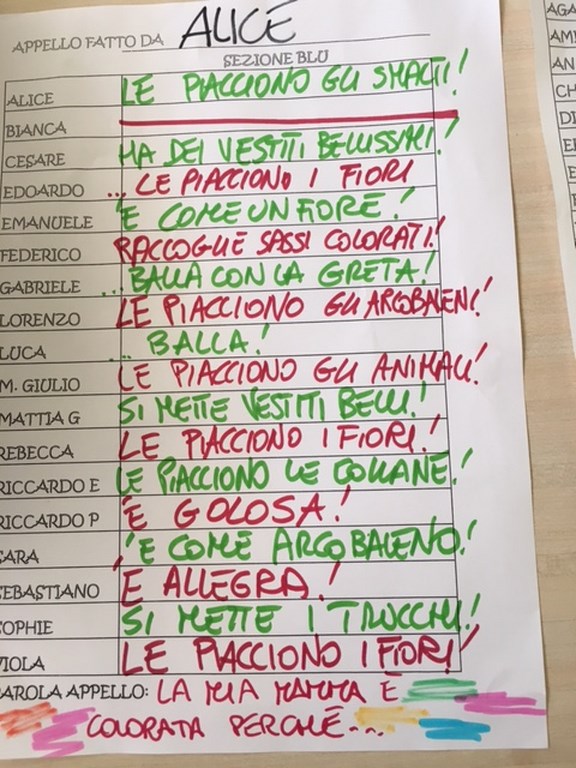 APPELLO FATTO DA ALICE
SEZIONE BLU
ALICE LE PIACCIONO GLI SMALTI!
BIANCA
CESARE HA DEI VESTITI BELLISSIMI!
EDOARDO ... LE PIACCIONO I FIORI
EMANUELE È COME UN FIORE!
FEDERICO RACCOGLIE SASSI COLORATI!
GABRIELE ... BALLA CON LA GRETA!
LORENZO LE PIACCIONO GLI ARCOBALENI!
LUCA ... BALLA!
M. GIULIO LE PIACCIONO GLI ANIMALI!
MATTIA G SI METTE VESTITI BELLI!
REBECCA LE PIACCIONO I FIORI!
RICCARDO E LE PIACCIONO LE COLLANE!
RICCARDO P È GOLOSA!
SARA È COME ARCOBALENO!
SEBASTIANO È ALLEGRA!
SOPHIE SI METTE I TRUCCHI!
VIOLA LE PIACCIONO I FIORI!
AROLA APPELLO: LA MIA MAMMA È
COLORATA PERCHÉ...
AGA
AM
AN
CH
DI